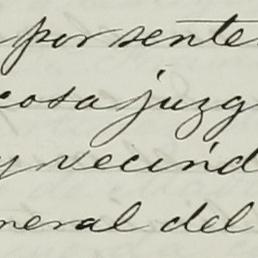 por sente
cosa juzg
y vecind
neral del